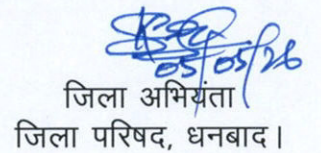 05/05/26
जिला अभियंता
जिला परिषद, धनबाद।